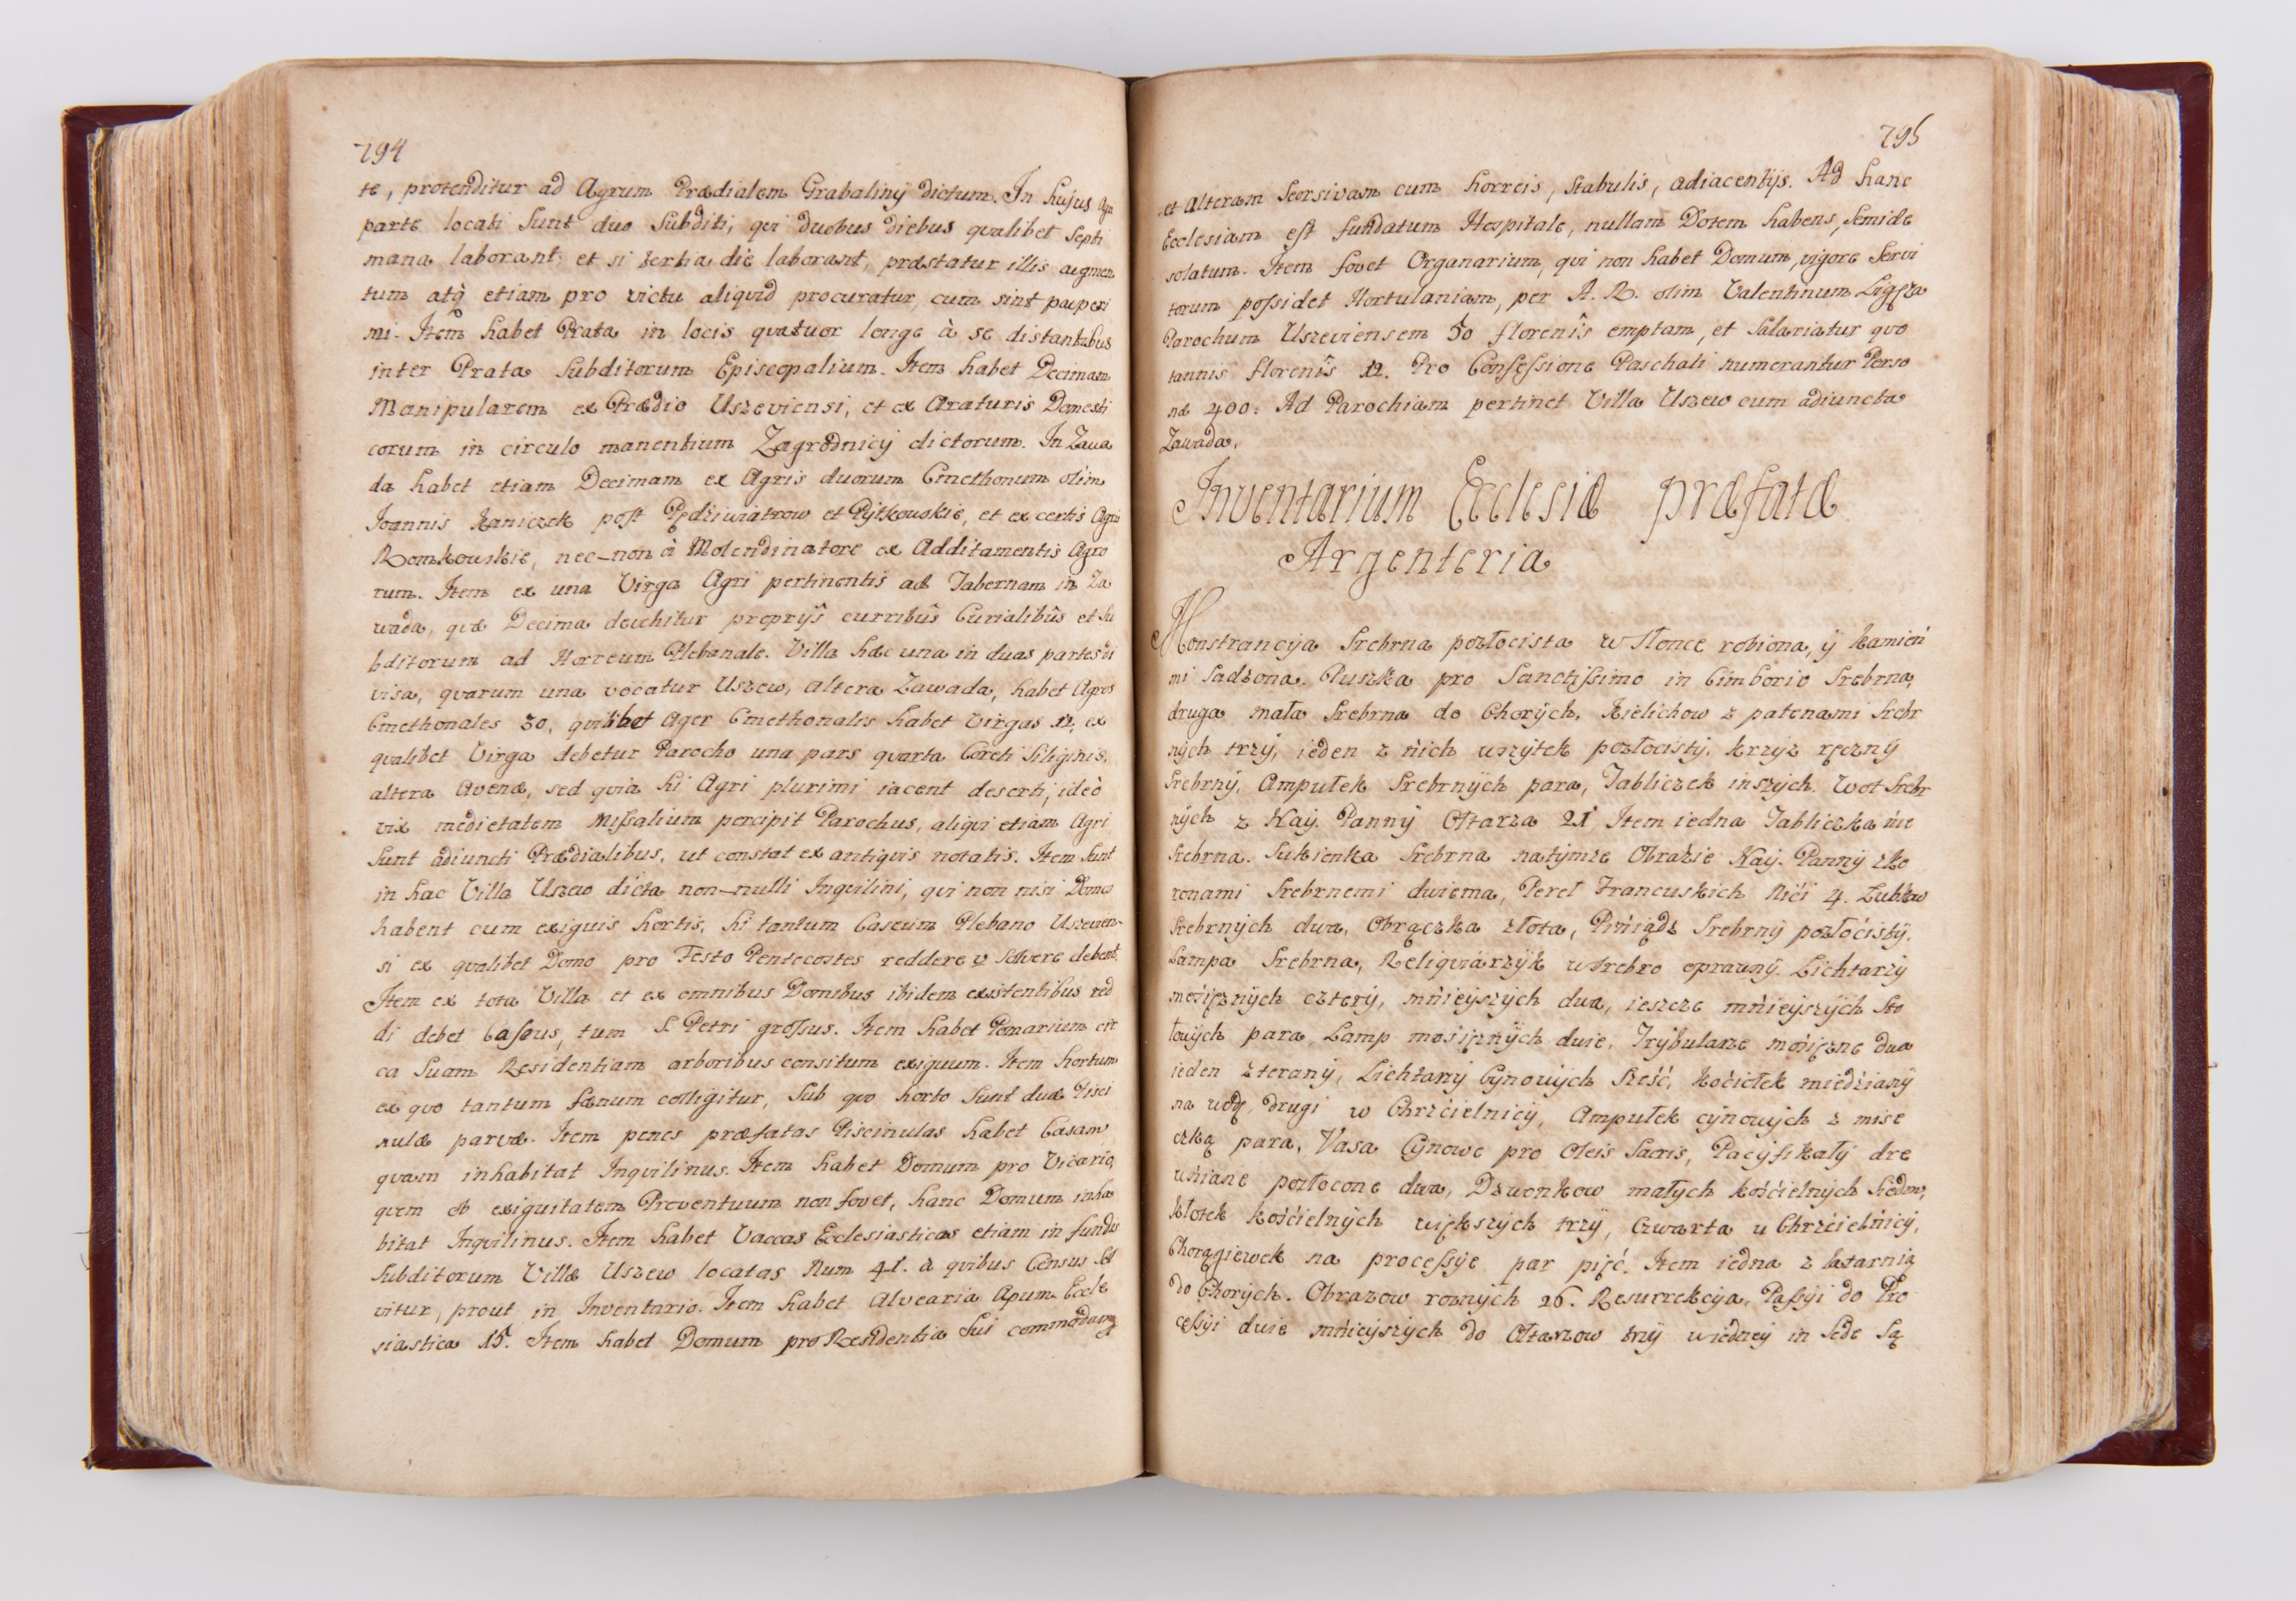 794
te, protenditur ad Agrum Prædialem Grabaliny dictum. In hujus Agri
parte locati sunt duo Subditi, qui duobus diebus qualibet Septi
mana laborant, et si tertia die laborant, præstatur illis augmen
tum atq̀ etiam pro victu aliquid procuratur, cum sint pauperi
mi. Item habet Prata in locis quatuor longe à se distantibus
inter Prata Subditorum Episcopalium. Item habet Decimam
Manipularem ex Prædio Uszeviensi, et ex Araturis Domesti
corum in circulo manentium Zagrodnicy dictorum. In Zawa
da habet etiam Decimam ex Agris duorum Cmethonum olim
Joannis Kaniczek post Pędziwiatrow et Pytkowskie, et ex certis Agris
Romkowskie, nec-non à Molendinatore ex Additamentis Agro
rum. Item ex una Virga Agri pertinentis ad Tabernam in Za
wada, quæ Decima devehitur proprys̑ curribus̑ Curialibus̑ et Su
bditorum ad Horreum Plebanale. Villa hæc una in duas partes di
visa, quarum una vocatur Uszew, altera Zawada, habet Agros
Cmethonales 30, quilibet Ager Cmethonalis habet Virgas 12, ex
qualibet Virga debetur Parocho una pars quarta Coreti Siliginis,
altera Avenæ, sed quia hi Agri plurimi iacent deserti, ideò
vix medietatem Missalium percipit Parochus, aliqui etiam Agri
Sunt adiuncti Prædialibus, ut constat ex antiquis notatis. Item sunt
in hac Villa Uszew dicta non-nulli Inquilini, qui non nisi Domos
habent cum exiguis hortis, hi tantum Caseum Plebano Uszevien-
si ex qualibet Domo pro Festo Pentecostes reddere Solvere debent.
Item ex tota Villa et ex omnibus Domibus ibidem existentibus red
di debet Caseus, tum S. Petri grossus. Item habet Pomarium cir
ca Suam Residentiam arboribus consitum exiguum. Item hortum
ex quo tantum fænum colligitur, Sub quo horto Sunt duæ Pisci
nulæ parvæ. Item penes præfatas Piscinulas habet Casam,
quam inhabitat Inquilinus. Item habet Domum pro Vicario,
quem ob exiguitatem Proventuum non fovet, hanc Domum inha
bitat Inquilinus. Item habet Vaccas Ecclesiasticas etiam in fundis
Subditorum Villæ Uszew locatas Num 41. à quibus Census Sol
vitur, prout in Inventario. Item habet Alvearia Apum Eccle
siastica 15. Item habet Domum pro Residentia Sui commodam,
795
et Alteram Seorsivam cum horreis, Stabulis, adiacentijs. Ad hanc
Ecclesiam est fundatum Hospitale, nullam Dotem habens, Semide
solatum. Item fovet Organarium, qui non habet Domum, vigore Servi
torum possidet Hortulaniam, per A. R. olim Valentinum Ligęza
Parochum Uszeviensem 50 florenis̑ emptam, et Salariatur quo
tannis florenis̑ 12. Pro Confessione Paschali numerantur Perso
næ 400: Ad Parochiam pertinet Villa Uszew cum adiuncta
Zawada,
Inventarium Ecclesiæ præfatæ
Argenteria
Monstrancya Srebrna pozłocista w Slonce robiona, ÿ kamień
mi Sadzona. Puszka pro Sanctissimo in Cimborio Srebrna,
druga mała Srebrna do Chorych, Kielichow z patenami Srebr
nych trzy, ieden z nich wszytek pozłocisty, krzyz ręczny
Srebrny, Ampułek Srebrnych para, Tabliczek inszych. Wot Srebr
nych z Nay. Panny Ołtarza 21 Item iedna Tabliczka nie
Srebrna. Sukienka Srebrna natymze Obrazie Nay. Panny zko
ronami Srebrnemi dwiema, Pereł Francuskich Nici 4. Zubkow
Srebrnych dwa, Obrączka złota, Piniądz Srebrny pozłocisty.
Lampa Srebrna, Reliquiarzyk wsrebro oprawny. Lichtarzy
mosiężnych cztery, mnieyszych dwa, ieszcze mnieyszych Sto
łowych para Lamp mosiężnych dwie, Trybularze mosiężne dwa
ieden zterany, Lichtarzy Cynowych Sześć, kociołek miedziany
na wodę, drugi w Chrzcielnicy, Ampułek cynowych z mise
czką para, Vasa Cynowe pro Oleis Sacris, Pacyfikały dre
wniane pozłocone dwa, Dzwonkow małych kościelnych Siedm,
kłotek kościelnych większych trzy, Czwarta u Chrzcielnicy,
Chorągiewek na processye par pięć. Item iedna z latarnią
do Chorych. Obrazow roznych 26. Resurrekcya, Passyi do Pro
cessyi dwie mnieyszych do Ołtarzow trzy wiedney in Sede Są